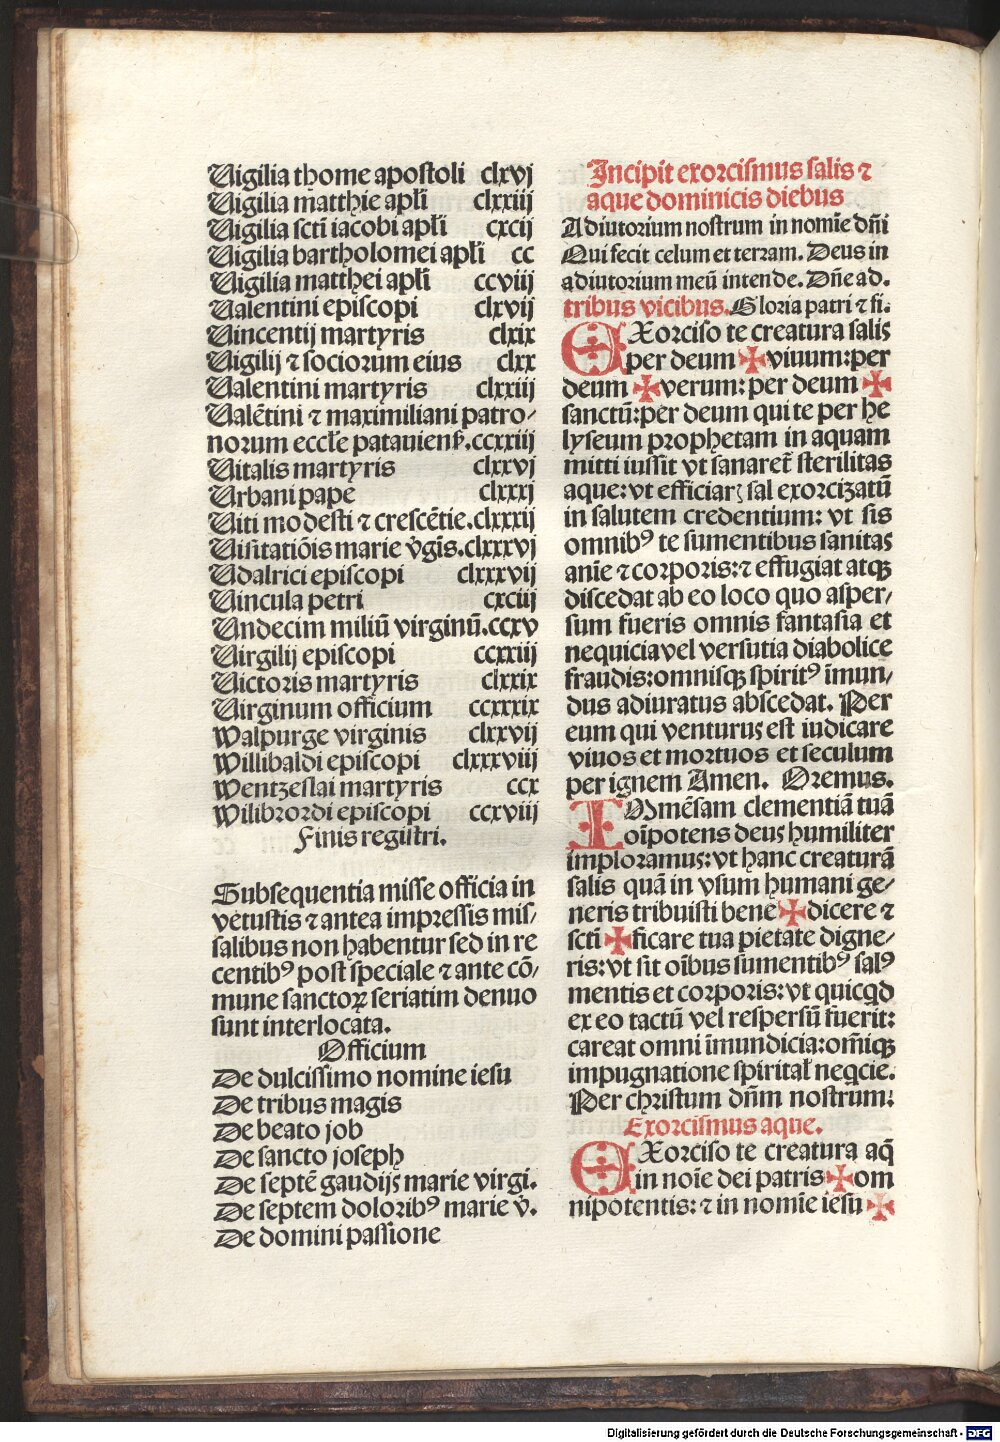 Vigilia thome apostoli clxvj
Vigilia matthie apłi clxxiij
Vigilia scti iacobi apłi cxcij
Vigilia bartholomei apłi cc
Vigilia matthei apłi ccviij
Valentini episcopi clxvij
Vincentij martyris clxix
Vigilij ⁊ sociorum eius clxx
Valentini martyris clxxiij
Valētini ⁊ maximiliani patro-
norum eccłe patauienß.ccxxiij
Vitalis martyris clxxvj
Vrbani pape clxxxj
Viti modesti ⁊ crescētie.clxxxij
Visitatiōis marie v̄gīs.clxxxvj
Vdalrici episcopi clxxxvij
Vincula petri cxciij
Vndecim miliū virginū.ccxv
Virgilij episcopi ccxxiij
Victoris martyris clxxix
Virginum officium ccxxxix
Walpurge virginis clxxvij
Willibaldi episcopi clxxxviij
Wentzeslai martyris ccx
Wilibrordi episcopi ccxviij
Finis registri.
Subsequentia misse officia in
vetustis ⁊ antea impressis mis-
salibus non habentur sed in re
centibꝰ post speciale ⁊ ante cō-
mune sanctoꝝ seriatim denuo
sunt interlocata.
Officium
De dulcissimo nomine iesu
De tribus magis
De beato job
De sancto joseph
De septē gaudijs marie virgi.
De septem doloribꝰ marie v̄.
De domini passione
Incipit exorcismus salis ⁊
aque dominicis diebus
Adiutorium nostrum in nomīe dn̄i
Qui fecit celum et terram. Deus in
adiutorium meū intende. Dn̄e ad.
tribus vicibus. Gloria patri ⁊ fi.
EXorciso te creatura salis
per deum ✠ viuum: per
deum ✠ verum: per deum ✠
sanctū: per deum qui te per he
lyseum prophetam in aquam
mitti iussit vt sanaret̄ sterilitas
aque: vt efficiarꝫ sal exorcizatū
in salutem credentium: vt sis
omnibꝰ te sumentibus sanitas
anīe ⁊ corporis: ⁊ effugiat atqꝫ
discedat ab eo loco quo asper-
sum fueris omnis fantasia et
nequicia vel versutia diabolice
fraudis: omnisqꝫ spiritꝰ īmun-
dus adiuratus abscedat. Per
eum qui venturus est iudicare
viuos et mortuos et seculum
per ignem Amen. Oremus.
IMmēsam clementiā tuā
oīpotens deus humiliter
imploramus: vt hanc creaturā
salis quā in vsum humani ge-
neris tribuisti bene ✠ dicere ⁊
scti ✠ ficare tua pietate digne-
ris: vt sit oībus sumentibꝰ salꝰ
mentis et corporis: vt quicqd
ex eo tactū vel respersū fuerit:
careat omni īmundicia: om̄iqꝫ
impugnatione spirital' neqcie.
Per christum dn̄m nostrum:
Exorcismus aque.
EXorciso te creatura aq̄
in noīe dei patris ✠ om
nipotentis: ⁊ in nomīe iesu ✠
Digitalisierung gefördert durch die Deutsche Forschungsgemeinschaft - DFG